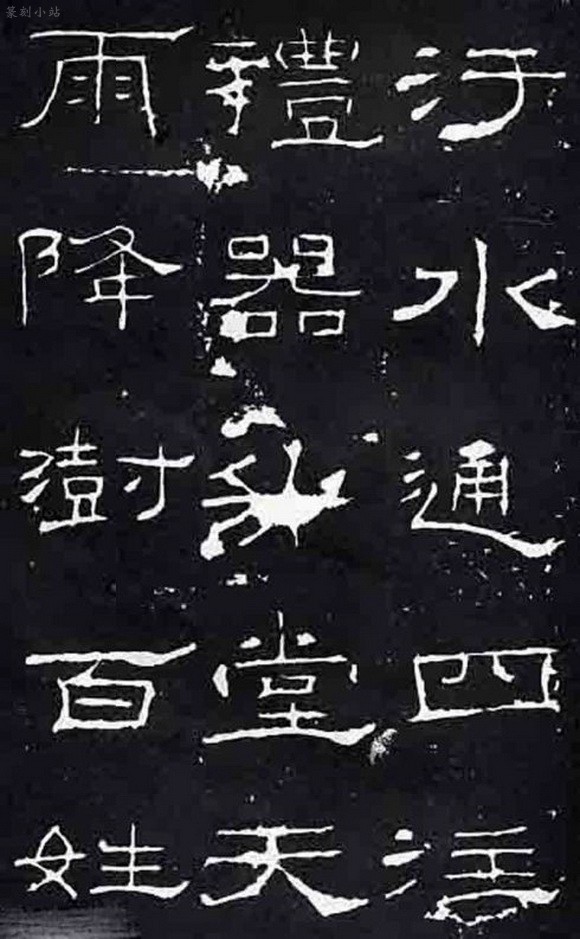 篆刻小站
汙水通四注
禮器升堂天
雨降澍百姓